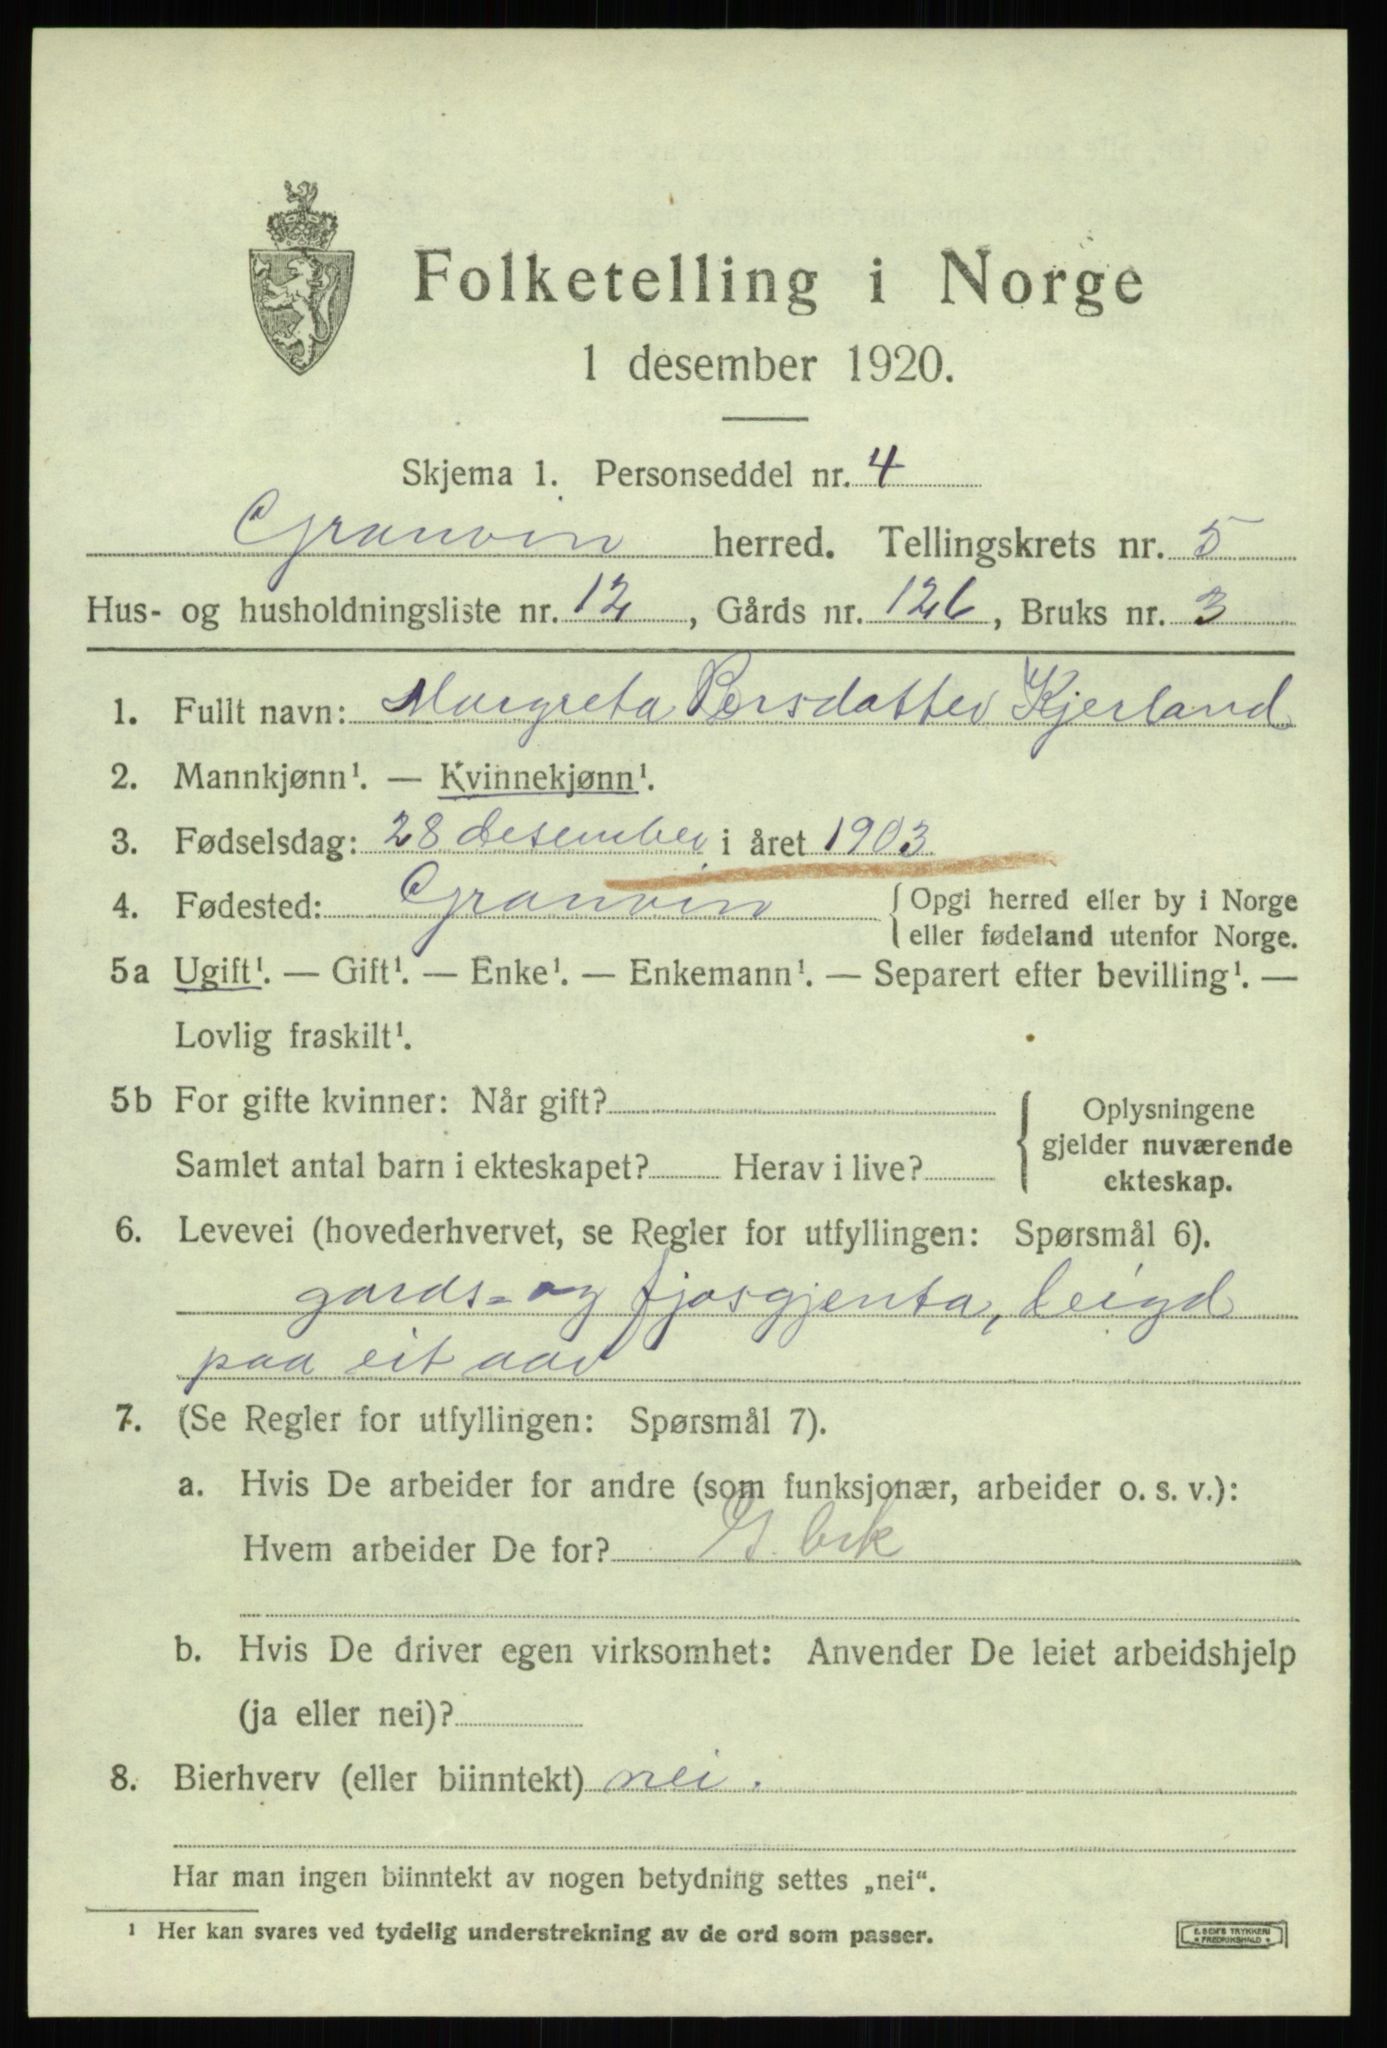 Folketelling i Norge
1 desember 1920.
Skjema 1. Personseddel nr. 4
Granvin herred. Tellingskrets nr. 5
Hus- og husholdningsliste nr. 12, Gårds nr. 126, Bruks nr. 3
1. Fullt navn: Margreta Persdotter Kjerland
2. Mannkjønn¹. — Kvinnekjønn¹.
3. Fødselsdag: 28 desember i året 1903
4. Fødested: Granvin { Opgi herred eller by i Norge
eller fødeland utenfor Norge.
5a Ugift¹. — Gift¹. — Enke¹. — Enkemann¹. — Separert efter bevilling¹. —
Lovlig fraskilt¹.
5b For gifte kvinner: Når gift?
Samlet antal barn i ekteskapet? Herav i live?
{ Oplysningene
gjelder nuværende
ekteskap.
6. Levevei (hovederhvervet, se Regler for utfyllingen: Spørsmål 6).
gards- og fjosgjenta, leigd
paa eit aar
7. (Se Regler for utfyllingen: Spørsmål 7).
a. Hvis De arbeider for andre (som funksjonær, arbeider o. s. v.):
Hvem arbeider De for? G. brk
b. Hvis De driver egen virksomhet: Anvender De leiet arbeidshjelp
(ja eller nei)?
8. Bierhverv (eller biinntekt) nei.
Har man ingen biinntekt av nogen betydning settes „nei“.
¹ Her kan svares ved tydelig understrekning av de ord som passer.
E. SEM'S TRYKKERI
FREDRIKSHALD